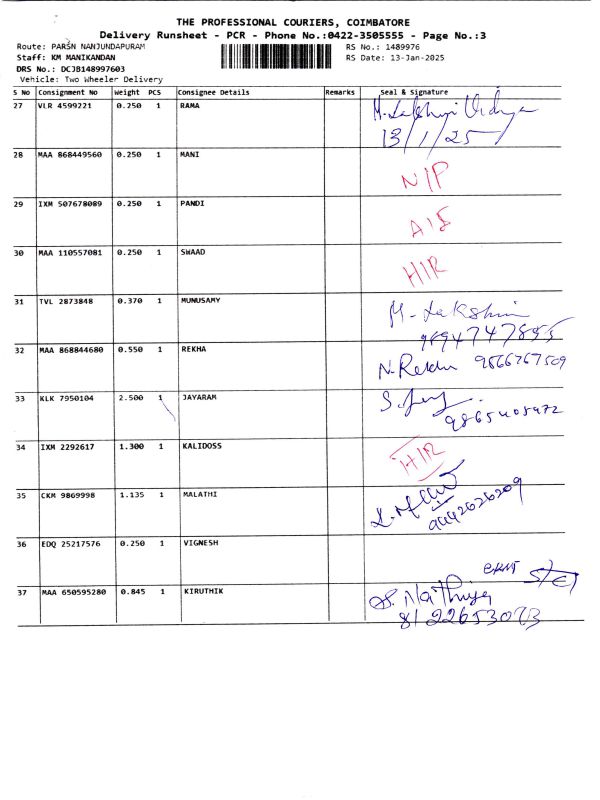 THE PROFESSIONAL COURIERS, COIMBATORE
Delivery Runsheet - PCR - Phone No.:0422-3505555 - Page No.:3
Route: PARSN NANJUNDAPURAM
RS No.: 1489976
Staff: KM MANIKANDAN
RS Date: 13-Jan-2025
DRS No.: DCJB148997603
Vehicle: Two Wheeler Delivery
S No Consignment No Weight PCS Consignee Details Remarks Seal & Signature
27 VLR 4599221 0.250 1 RAMA
13/1/25
28 MAA 868449560 0.250 1 MANI N/P
29 IXM 507678089 0.250 1 PANDI
30 MAA 110557081 0.250 1 SWAAD
31 TVL 2873848 0.370 1 MUNUSAMY M-Lakshmi
9894747895
32 MAA 868844680 0.550 1 REKHA N.Rekha 9566767509
33 KLK 7950104 2.500 1 JAYARAM
9865408972
34 IXM 2292617 1.300 1 KALIDOSS
35 CKM 9869998 1.135 1 MALATHI
9442626209
36 EDQ 25217576 0.250 1 VIGNESH
37 MAA 650595280 0.845 1 KIRUTHIK S. Nathiya
8122653073